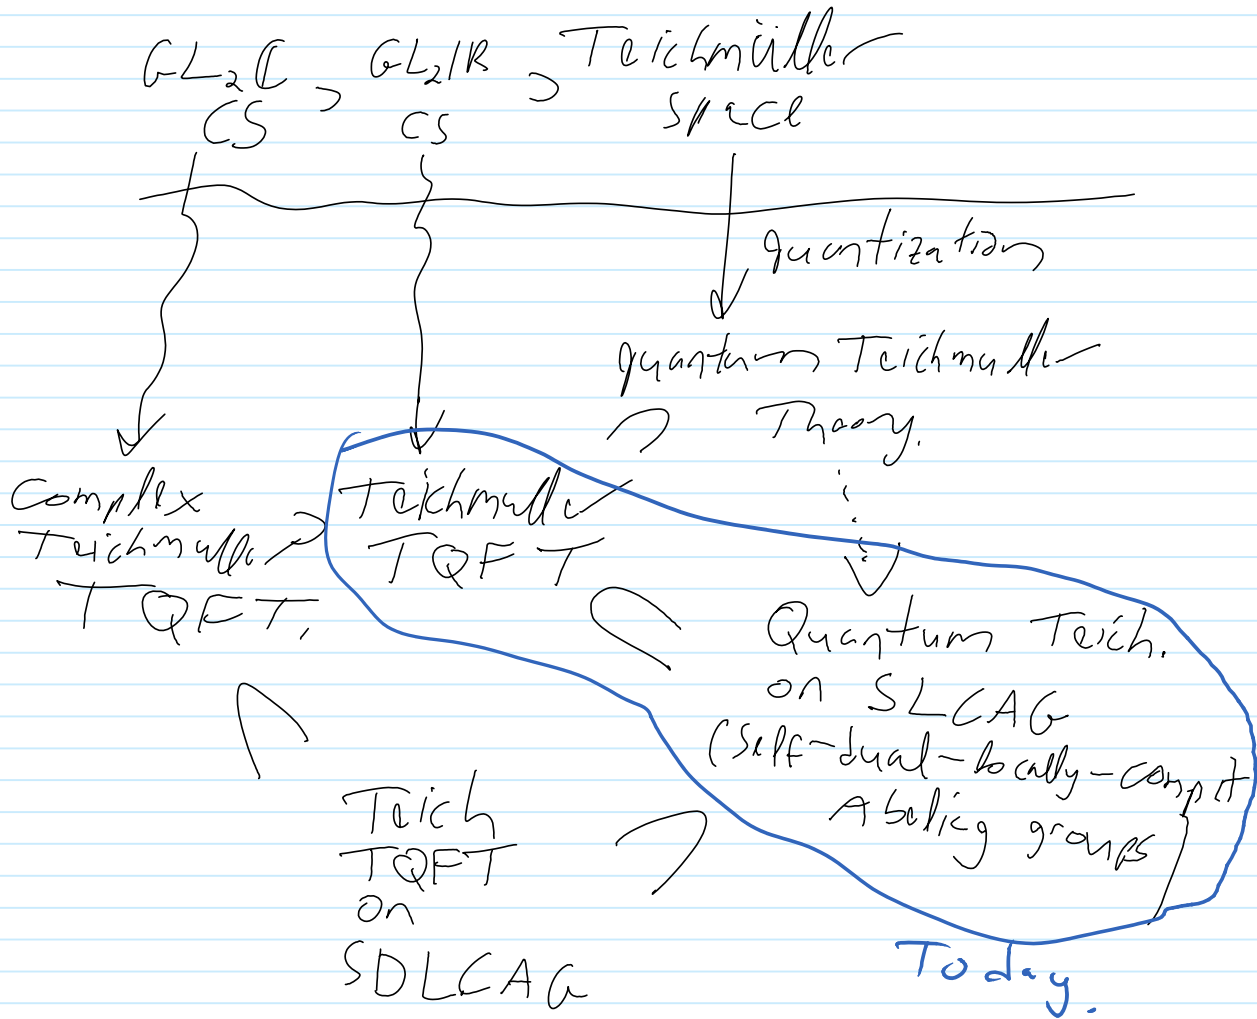 GL₂ℂ , GL₂ℝ , Teichmüller
CS CS space
quantization
quantum Teichmuller
Theory.
Complex
Teichmuller
TQFT.
Teichmuller
TQFT
Quantum Teich.
on SLCAG
(Self-dual-locally-compct
Abelian groups)
Teich
TQFT
on
SDLCAG
Today.